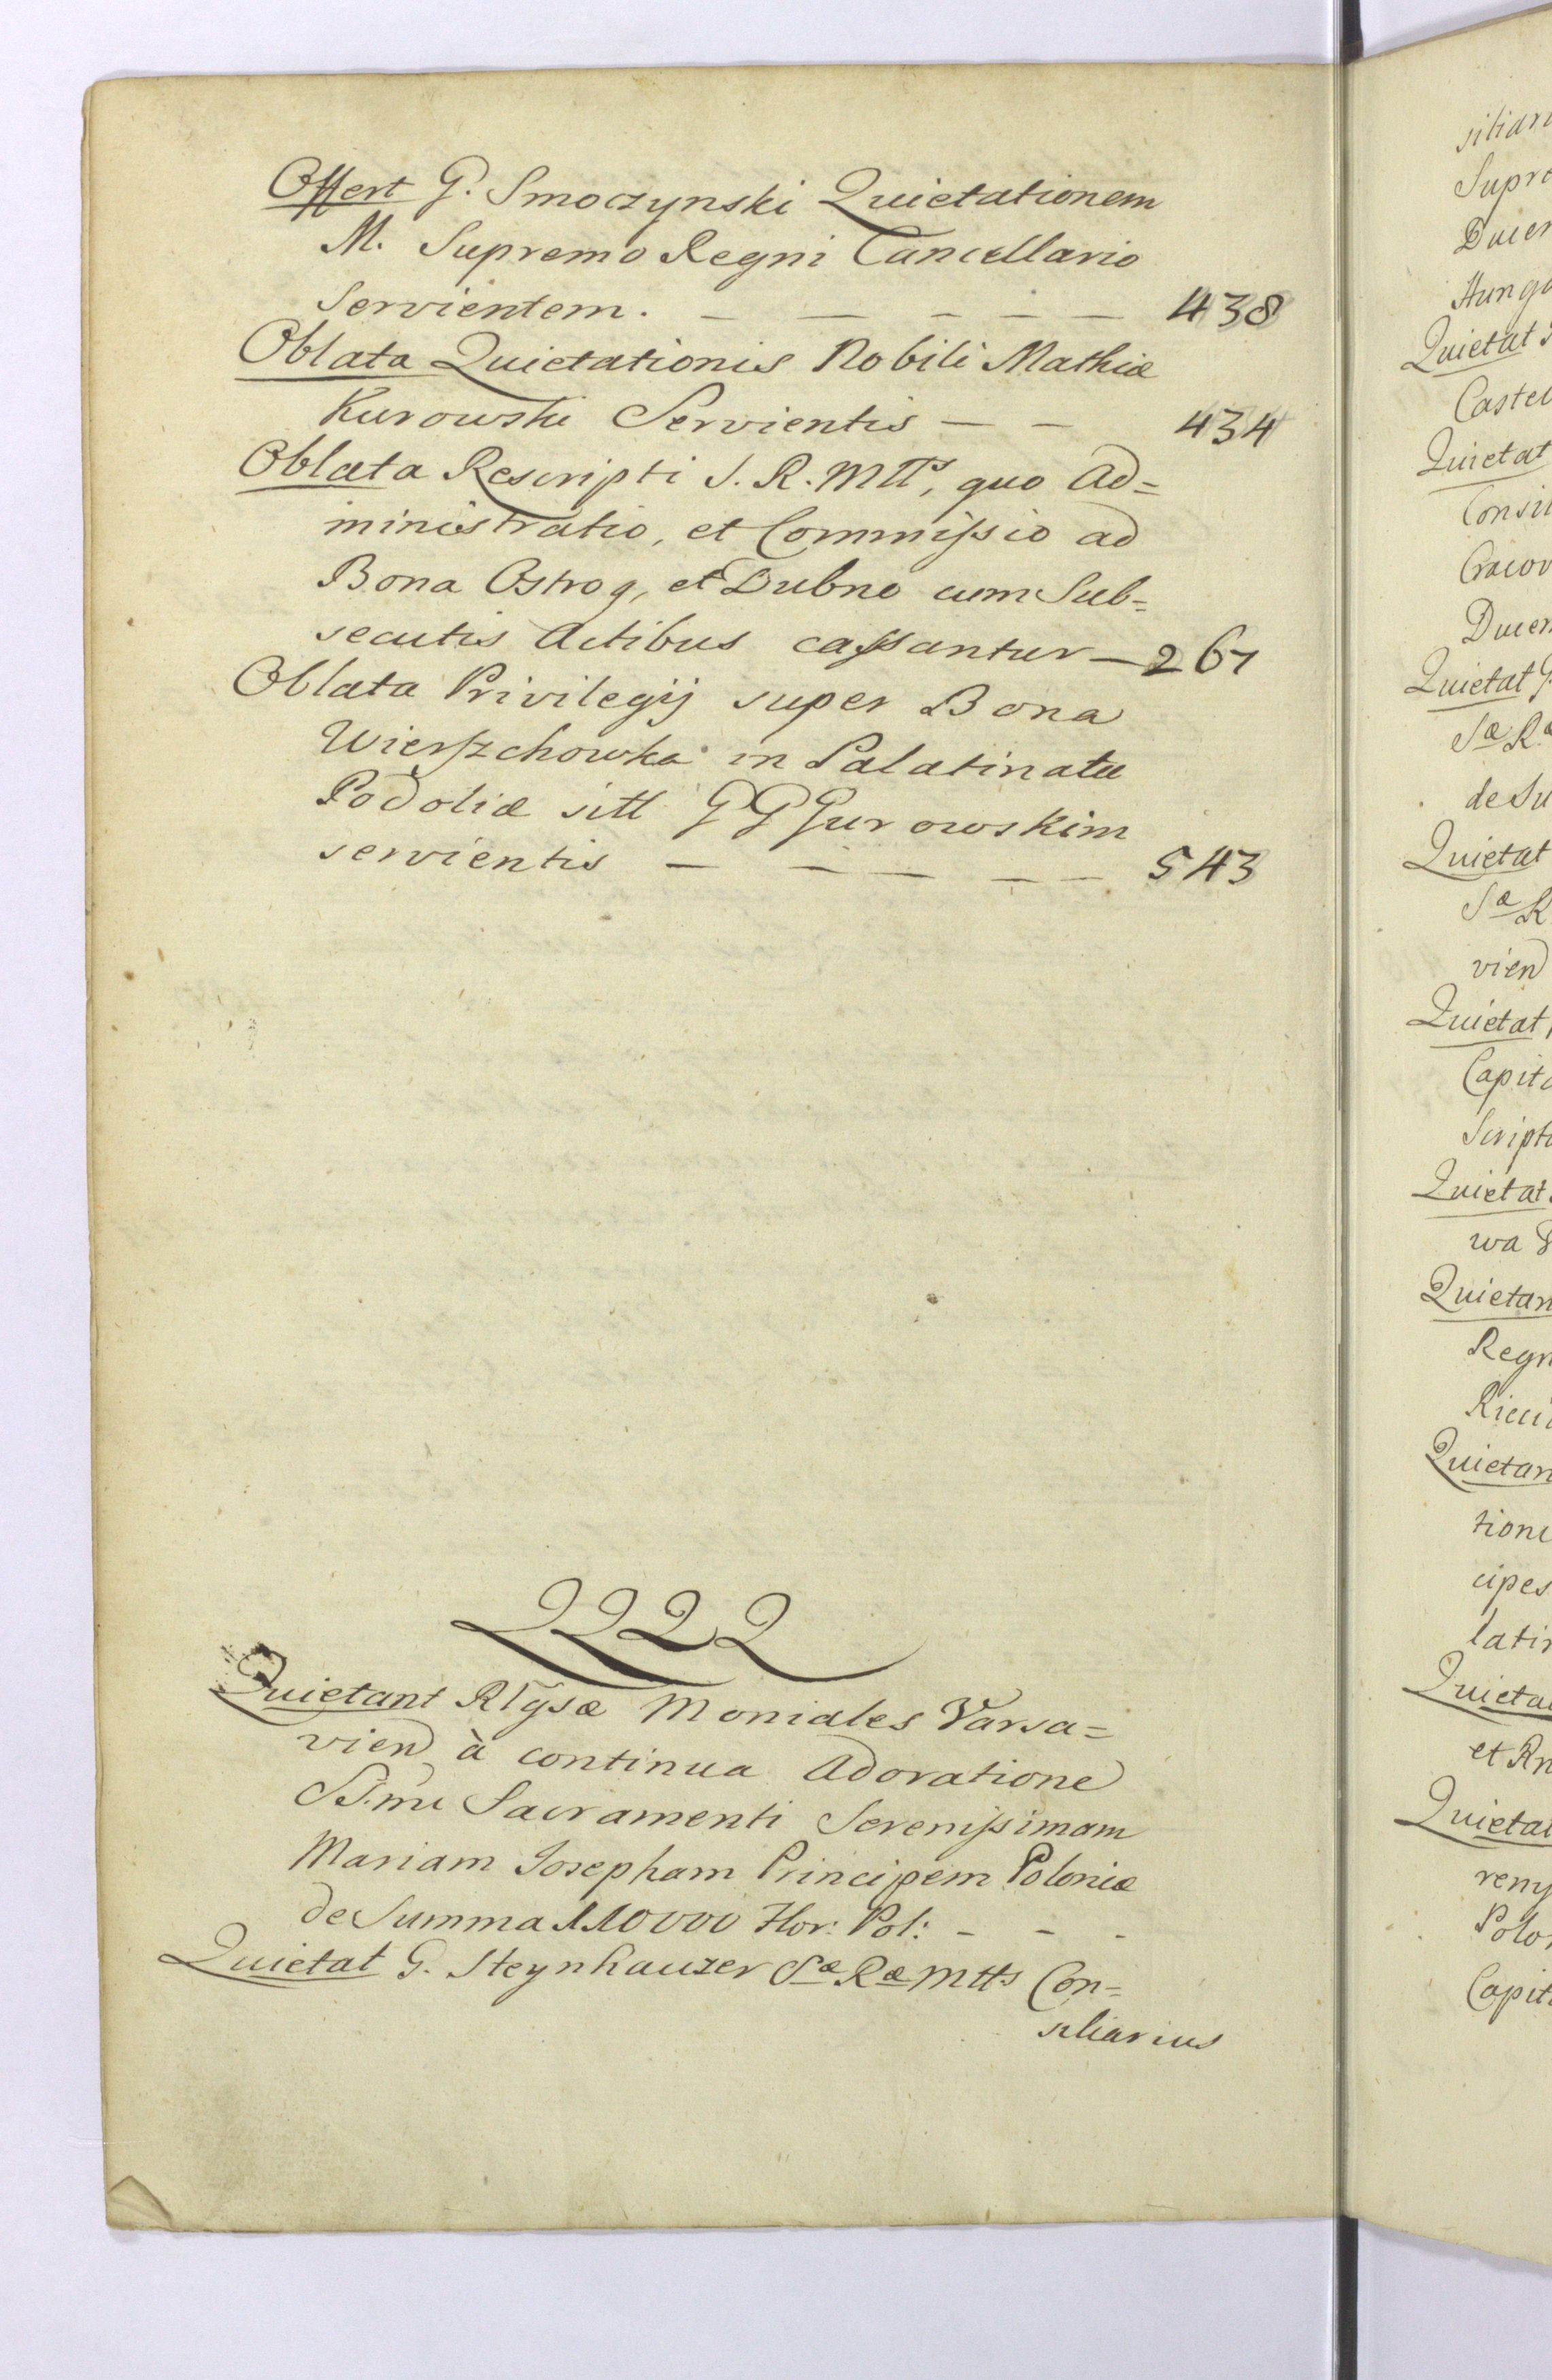 Offert G. Smoczynski Quietationem
M. Supremo Regni Cancellario
Servientem. — — — — — 438
Oblata Quietationis Nobili Mathiæ
Kurowski Servientis — — 434
Oblata Rescripti S. R. Mtts, quo Ad=
ministratio, et Commissio ad
Bona Ostrog, et Dubno cum Sub=
secutis Actibus cassantur — 267
Oblata Privilegij super Bona
Wierszchowka in Palatinatu
Podoliæ sitt GG Gurowskim
servientis — — — — — 543
QQQQ
Quietant Rlgsæ Moniales Varsa=
vien à continua Adoratione
SS.mi Sacramenti Serenissimam
Mariam Josepham Principem Poloniæ
de Summa 110000 Flor: Pol: - - -
Quietat G. Steynhauzer Sæ Ræ Mtts Con=
siliarius
siliari
Supre
Ducen
Hunga
Quietat
Castel
Quietat
Consil
Cracov
Ducen
Quietat G
Sæ Ræ
de Su
Quietat
Sæ R
vien
Quietat
Capita
Script
Quietat
wa
Quietan
Regn
Ricci
Quietan
tione
cipes
latin
Quieta
et Rn
Quietat
reny
Polon
Capit